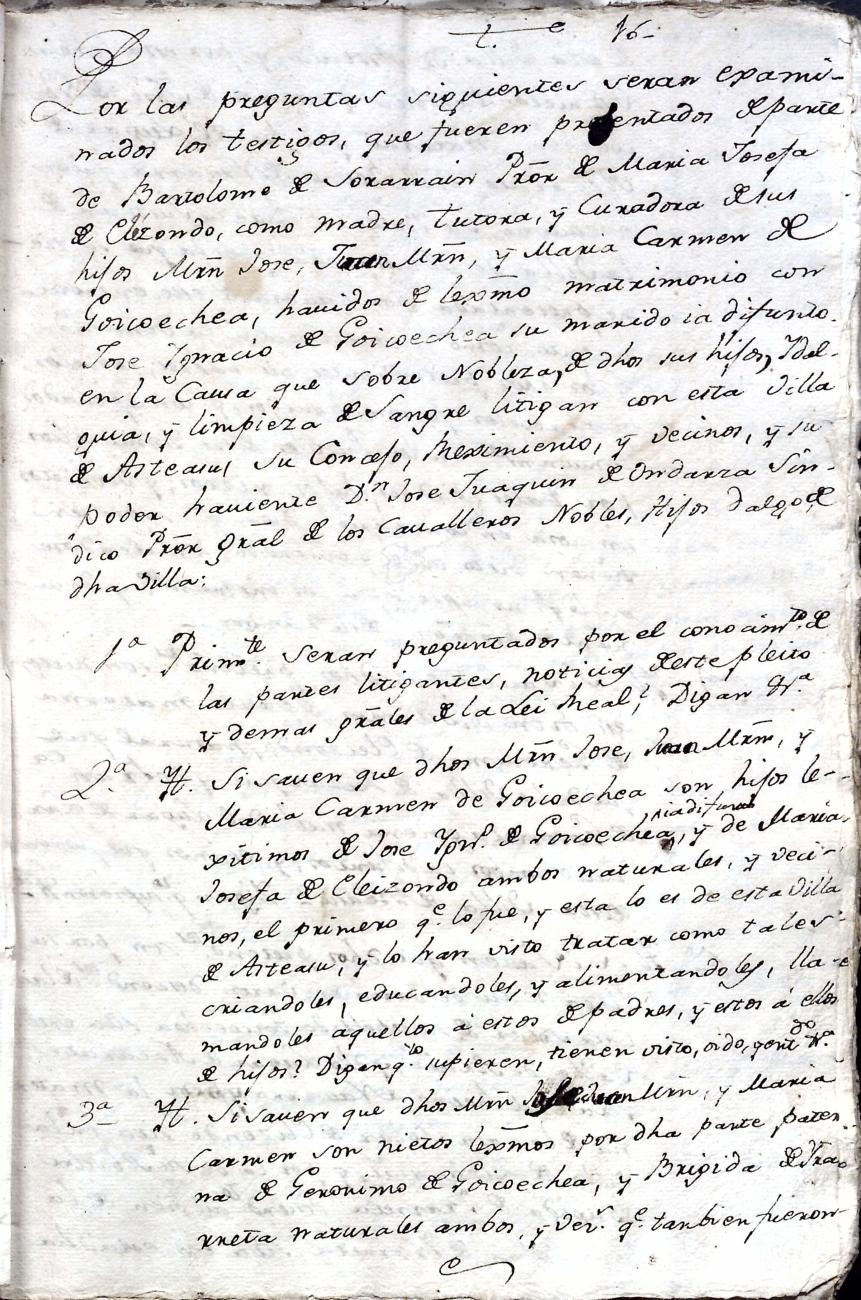 16-
Por las preguntas siguientes seran exami-
nados los testigos, que fueren presentados de parte
de Bartolome de Sorarrain Pror de Maria Josefa
de Elizondo, como madre, tutora, y Curadora de sus
hijos Mrn Jose, Juan Mrn, y Maria Carmen de
Goicoechea, havidos de lexmo matrimonio con
Jose Ygnacio de Goicoechea su marido ia difunto.
en la Causa que sobre Nobleza, de dhos sus hijos, Ydal-
guia, y limpieza de Sangre litigan con esta Villa
de Asteasu, su Concejo, Reximiento, y vecinos, y su
poder haviente Dn Jose Juaquin de Ondarza Sin-
dico Pror Gral de los Cavalleros Nobles, Hijos dalgo de
dha Villa:
1a Primte seran preguntados por el conocimto de
las partes litigantes, noticias de este pleito
y demas grales de la Lei Real? Digan &a
2a Yt. Si saven que dhos Mrn Jose, Juan Mrn, y
Maria Carmen de Goicoechea son hijos le-
xitimos de Jose Ygno de Goicoechea, ia difunto, y de Maria
Josefa de Eleizondo ambos naturales, y veci-
nos, el primero qe lo fue, y esta lo es de esta Villa
de Asteasu, y lo han visto tratar como tales
criandoles, educandoles, y alimentandoles, lla-
mandoles aquellos á estos de padres, y estos á ellos
de hijos? Digan qto supieren, tienen visto, oido, y entdo &a
3a Yt. Si saven que dhos Mrn Jose, Juan Mrn, y Maria
Carmen son nietos lexmos por dha parte pater-
na de Geronimo de Goicoechea, y Brigida de Yra-
rreta naturales ambos, y vecs qe tanbien fueron